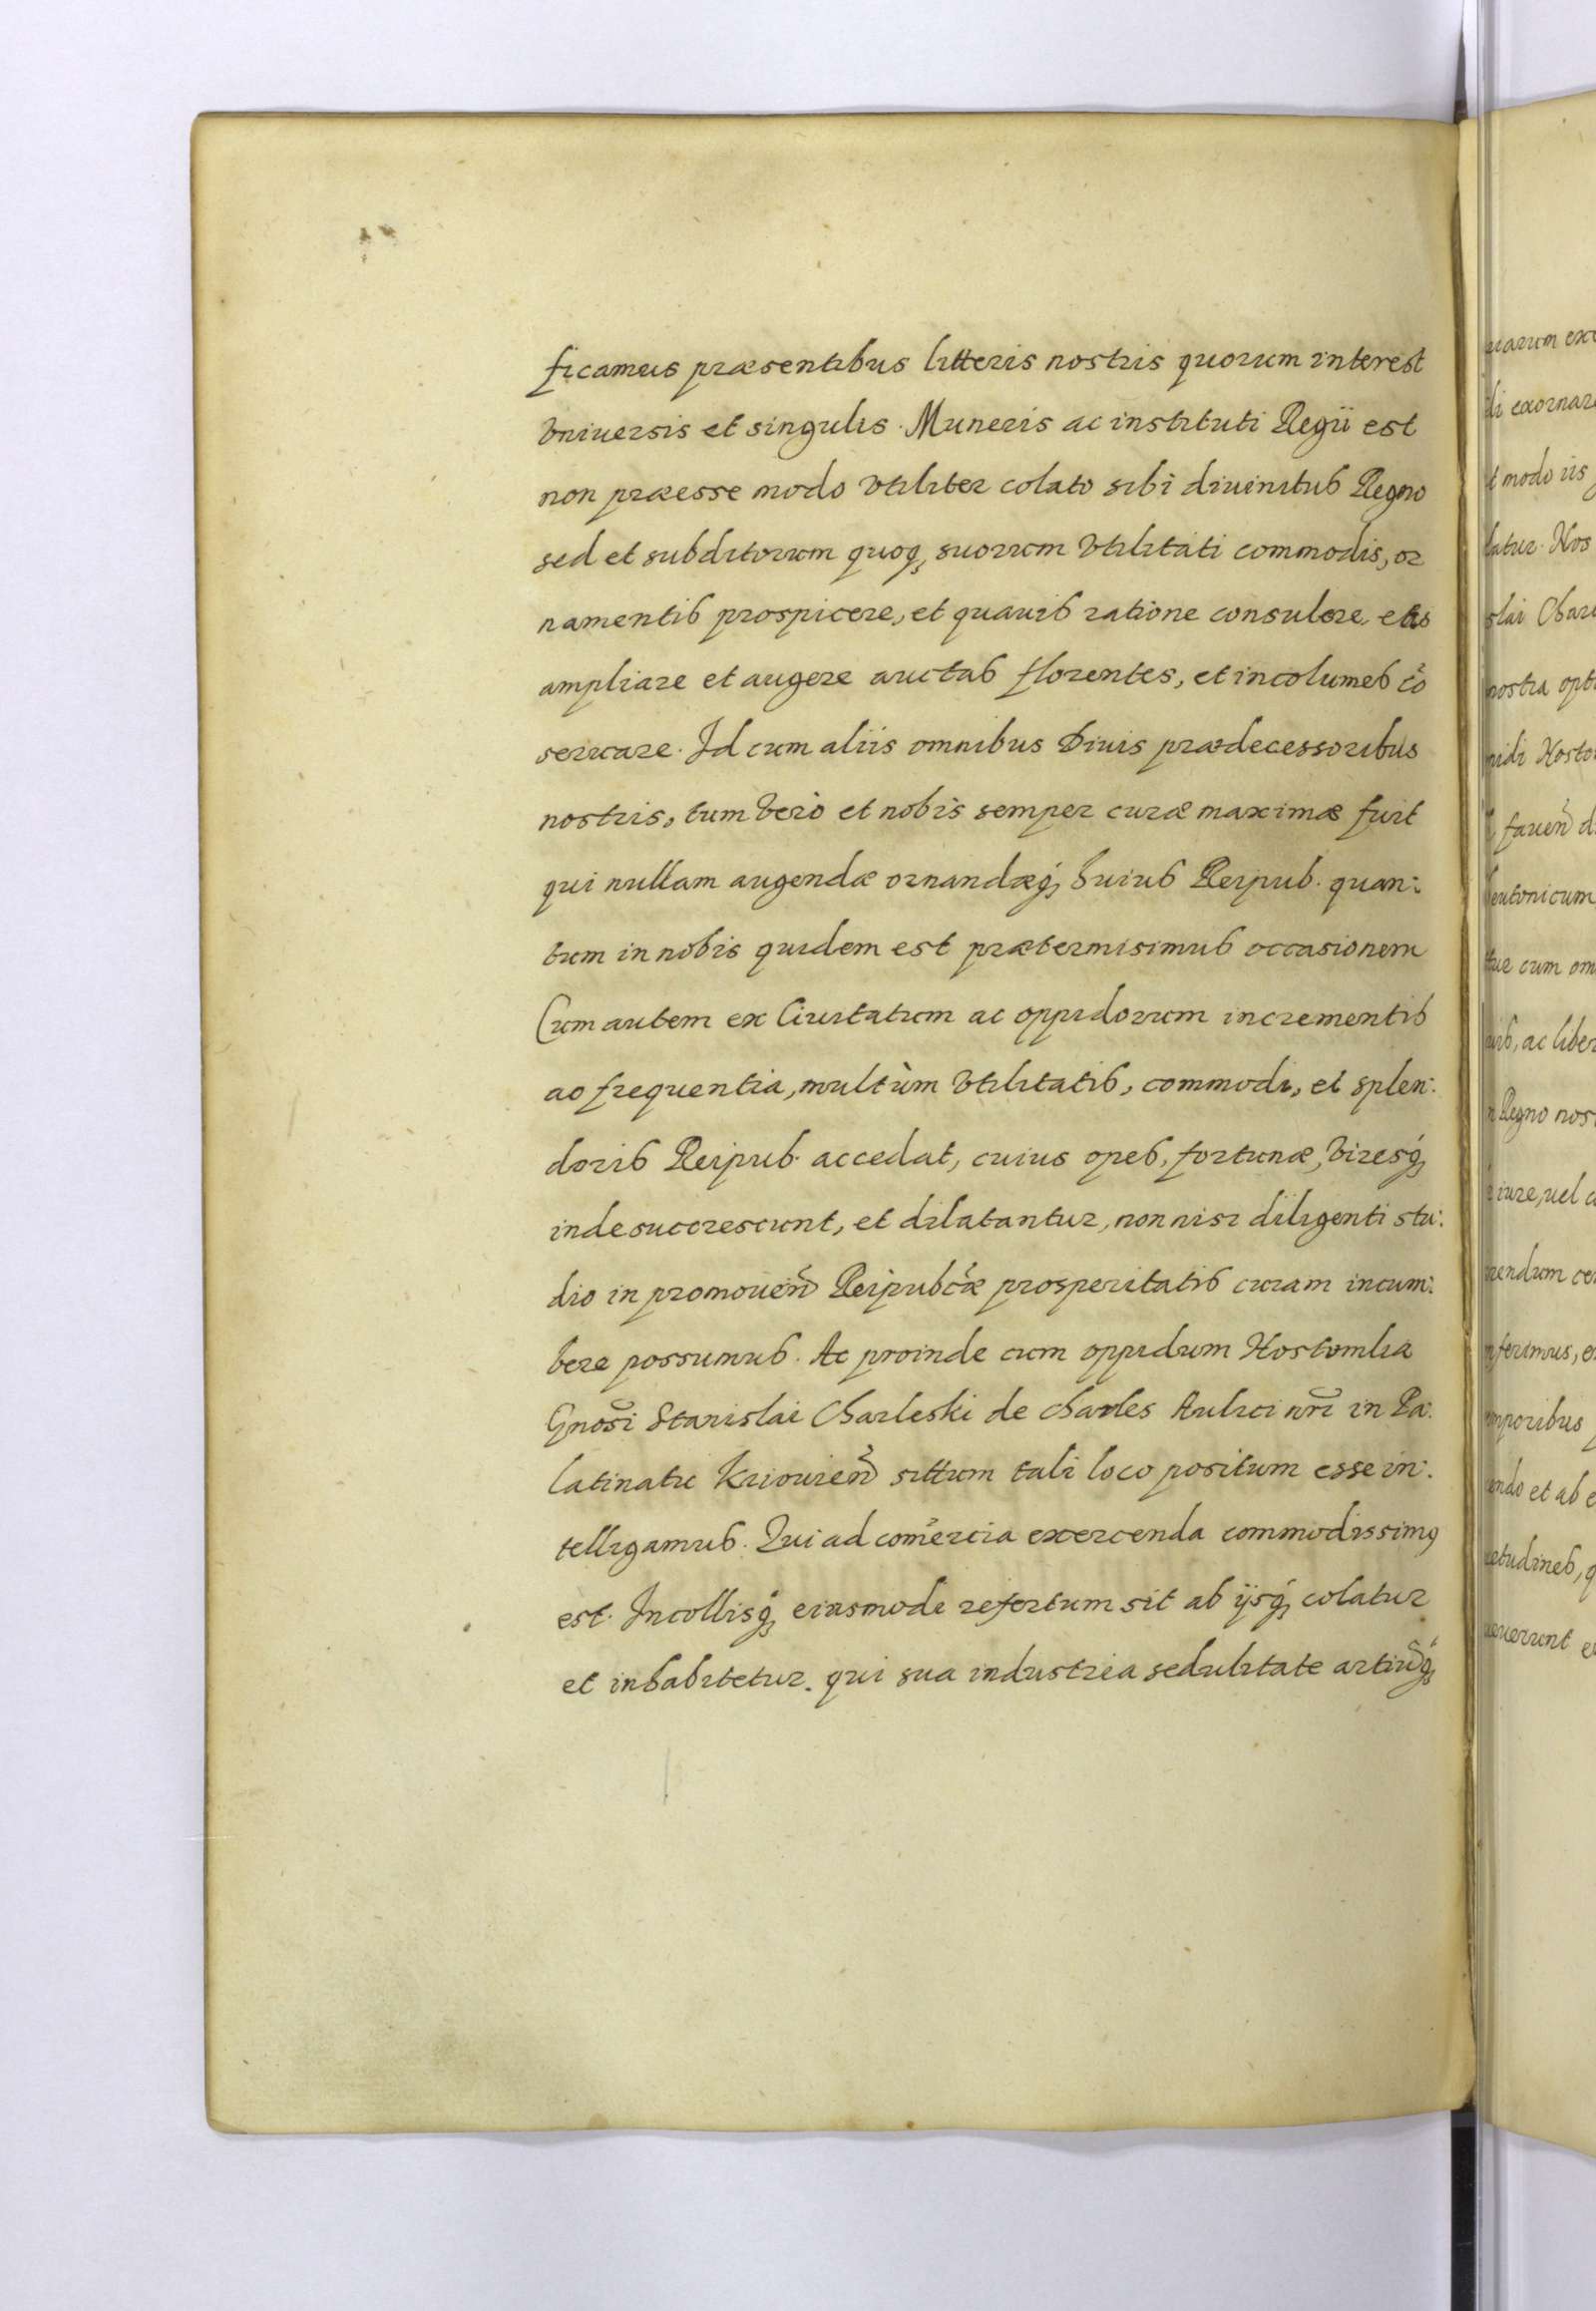 ficamus præsentibus litteris nostris quorum interest
Vniuersis et singulis. Muneris ac instituti Regii est
non præesse modo Vtiliter colato sibi diuinitus Regno
sed et subditorum quoq, suorum Vtilitati commodis, or
namentis prospicere, et quauis ratione consulere, eas
ampliare et augere auctas florentes, et incolumes cõ
seruare. Id cum aliis omnibus Diuis prædecessoribus
nostris, tum Verò et nobis semper curæ maximæ fuit
qui nullam augendæ ornandæq, huius Reipub. quan:
tum in nobis quidem est prætermisimus occasionem
Cum autem ex Ciuitatum ac oppidorum incrementis
ac frequentia, multùm Vtilitatis, commodi, et splen:
doris Reipub. accedat, cuius opes, fortunæ, Viresq,
inde succrescunt, et dilatantur, non nisi diligenti stu:
dio in promouen̄ Reipubcæ prosperitatis curam incum:
bere possumus. Ac proinde cum oppidum Hostomlia
Gnosi Stanislai Charleski de Charles Aulici nr̃i in Pa:
latinatu Kiiouien̄ sittum tali loco positum esse in:
telligamus. Qui ad com̃ercia excercenda commodissimq
est. Incollisq, eiusmodi refertum sit ab ijsq, colatur
et inhabitetur. qui sua industria sedulitate artiũq,
uarum exc
di exornar
t modo iis
latur. Nos
slai Char
nostra opt
pidi Hosto
fauen̄ d
eutonicum
ue cum om
uis, ac liber
n Regno nos
iure, uel a
rendum ce
nferimus, e
mporibus
endo et ab e
etudines, q
uenerunt e